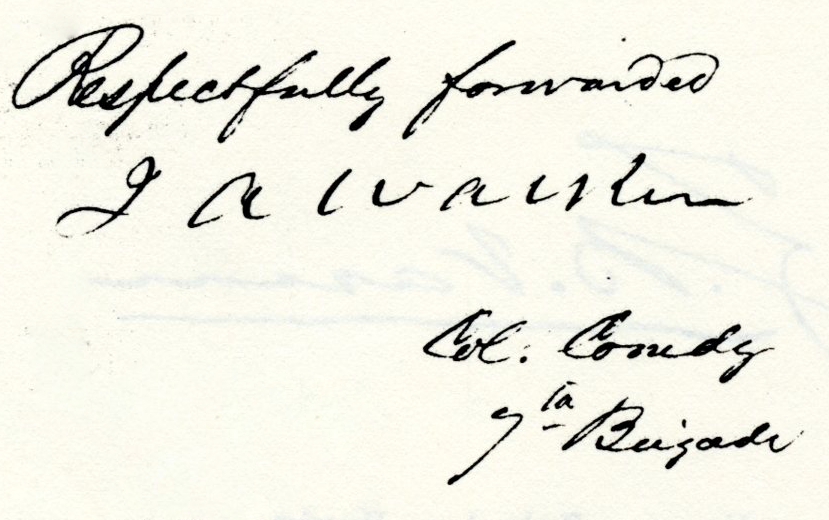 Respectfully forwarded
J A Walker
Col. Comdg
7th Brigade